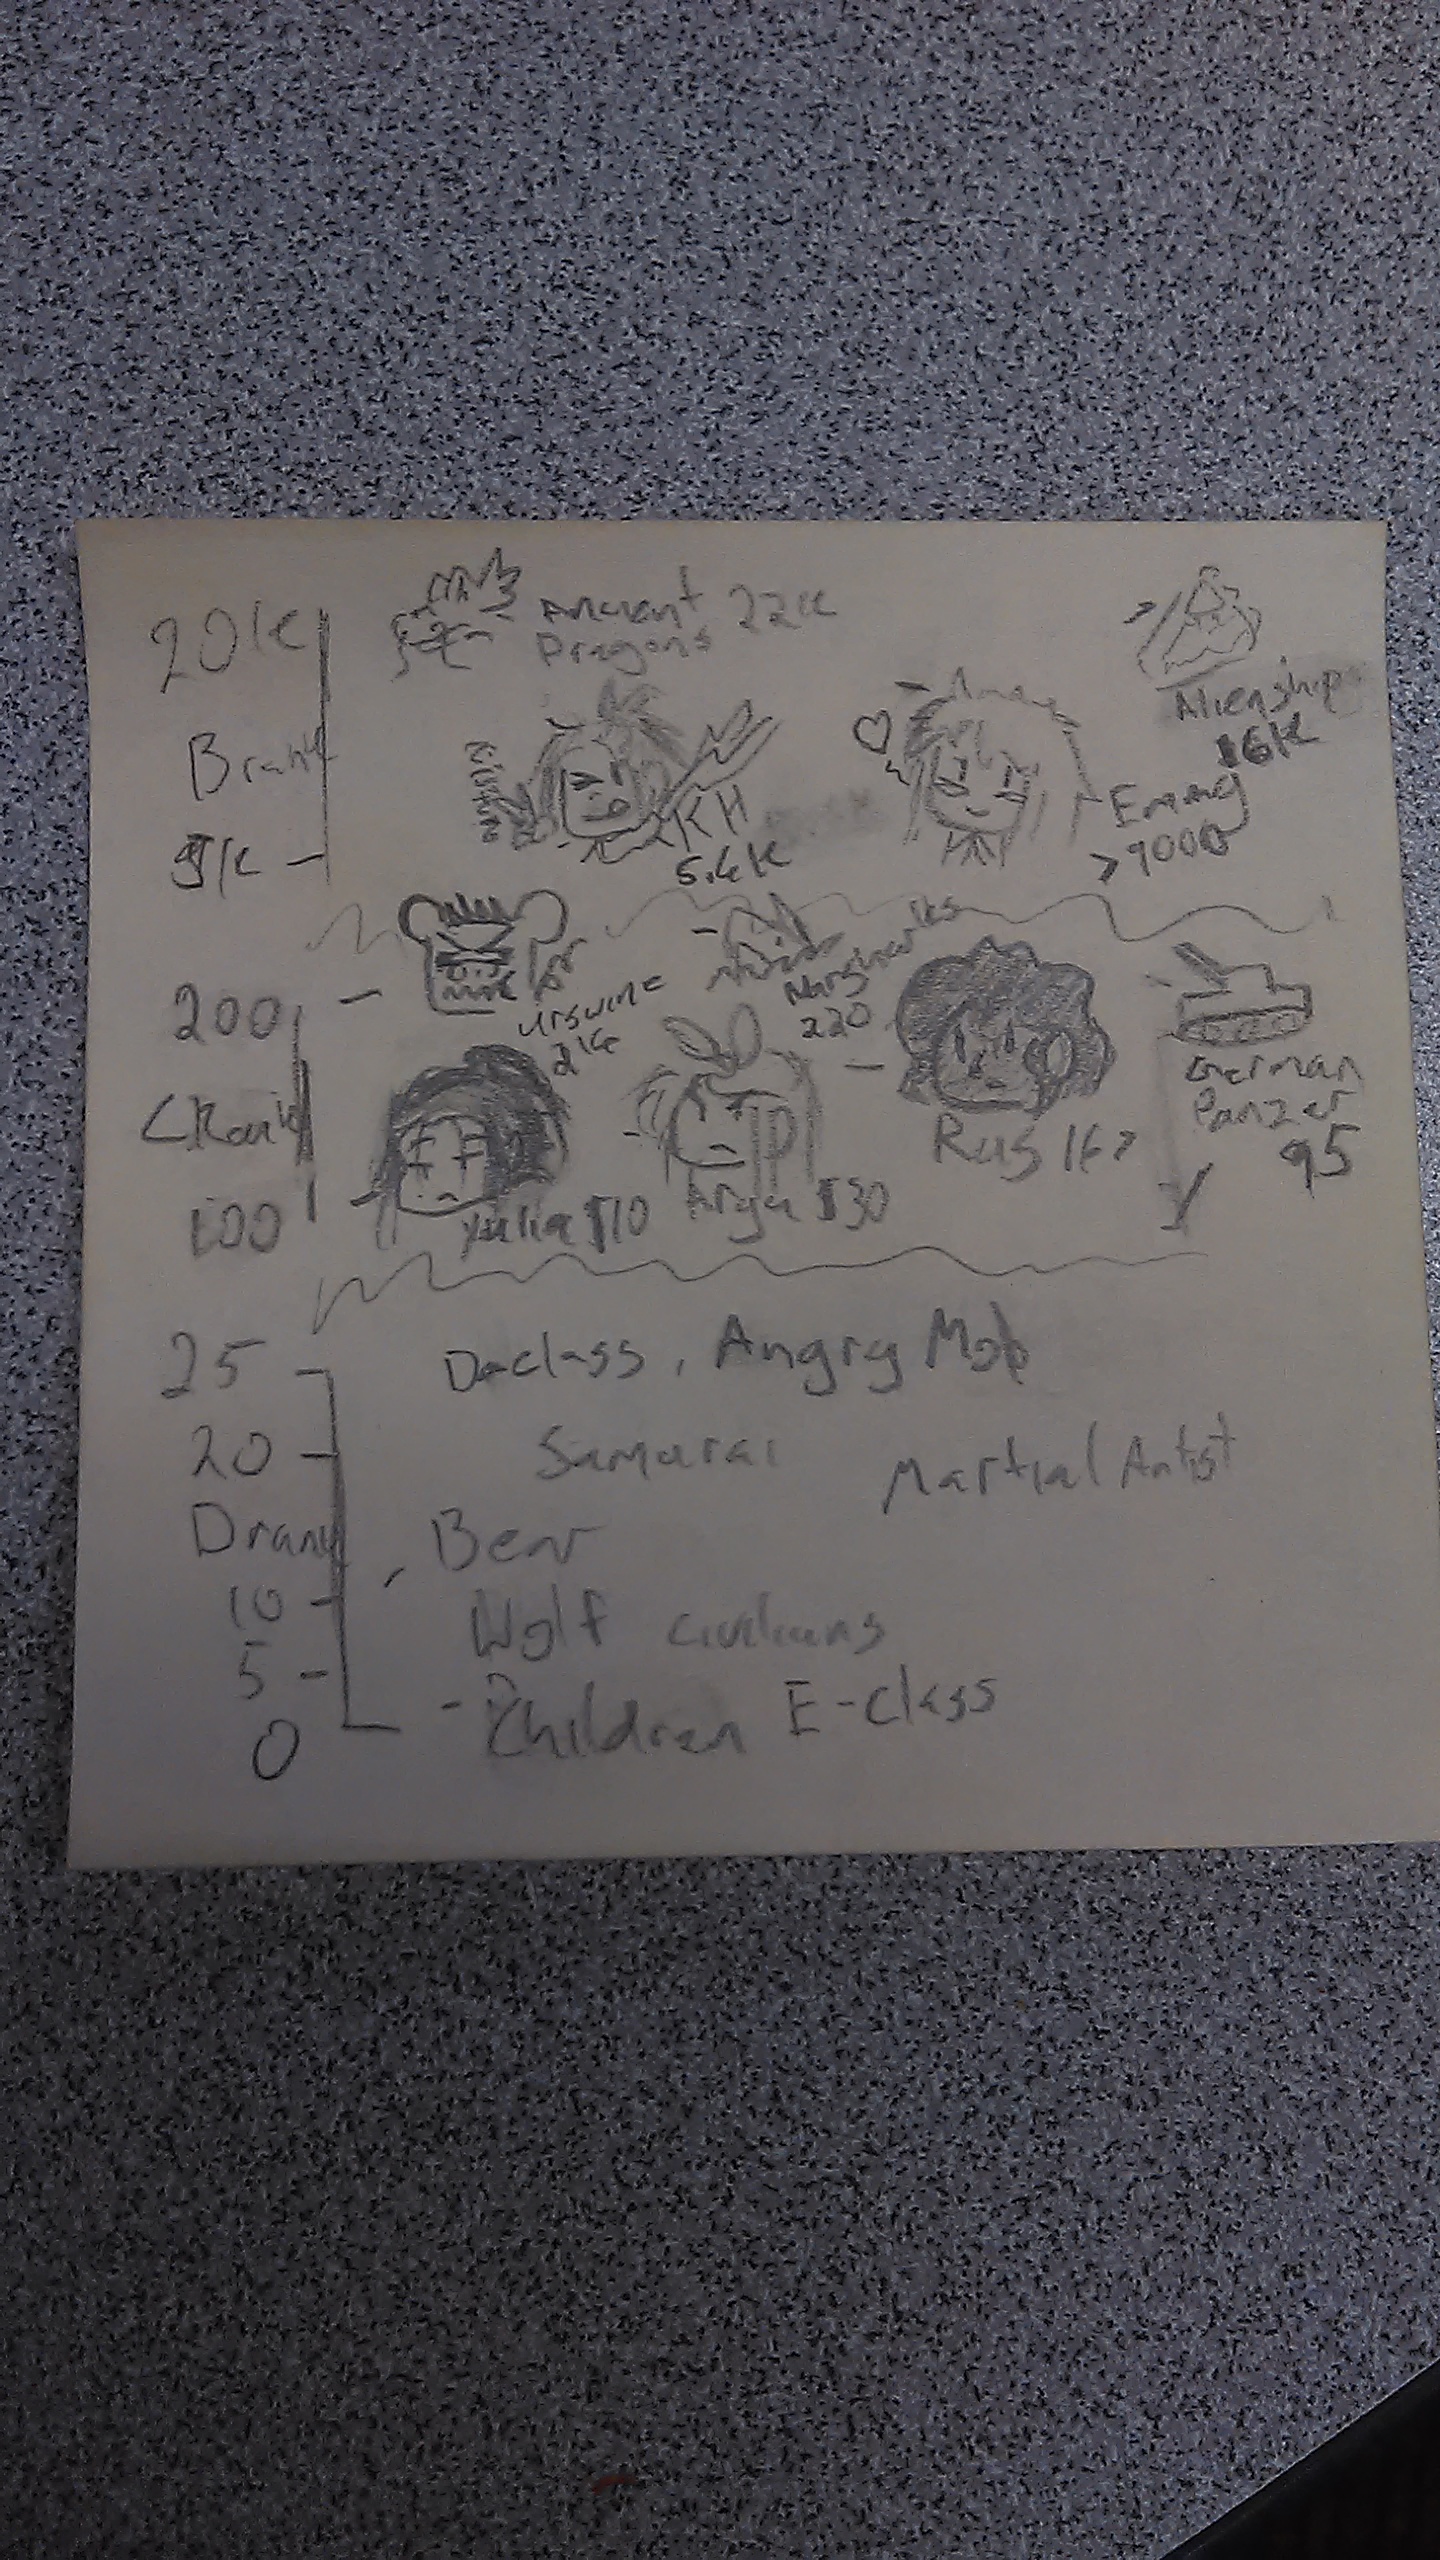 20K
Ancient 22K
Dragons
Alienships
16K
B rank
KH
5.6K
Emmy
>9000
5K
200
Ursuine
Warsharks
220
German
Panzer
95
C Rank
Rus 167
100
Yulia 110
Arya 130
25
D-class, Angry Mob
20
Samurai
Martial Artist
D rank
Bear
10
Wolf civilians
5
Children E-class
0